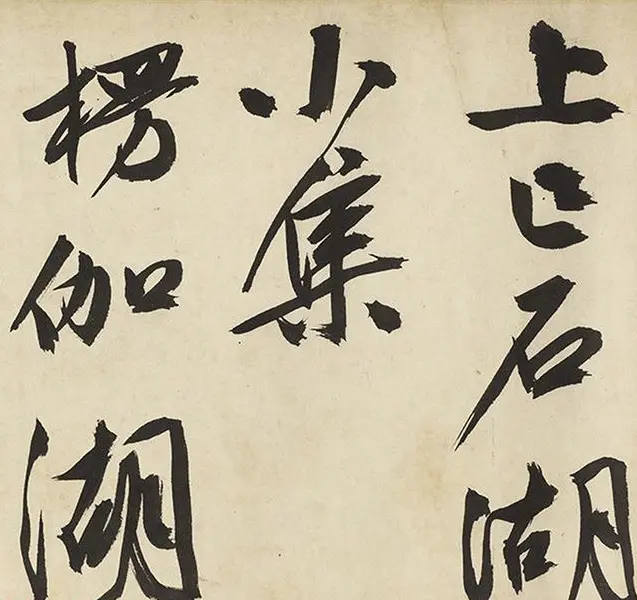 上巳石湖
小集
楞伽湖